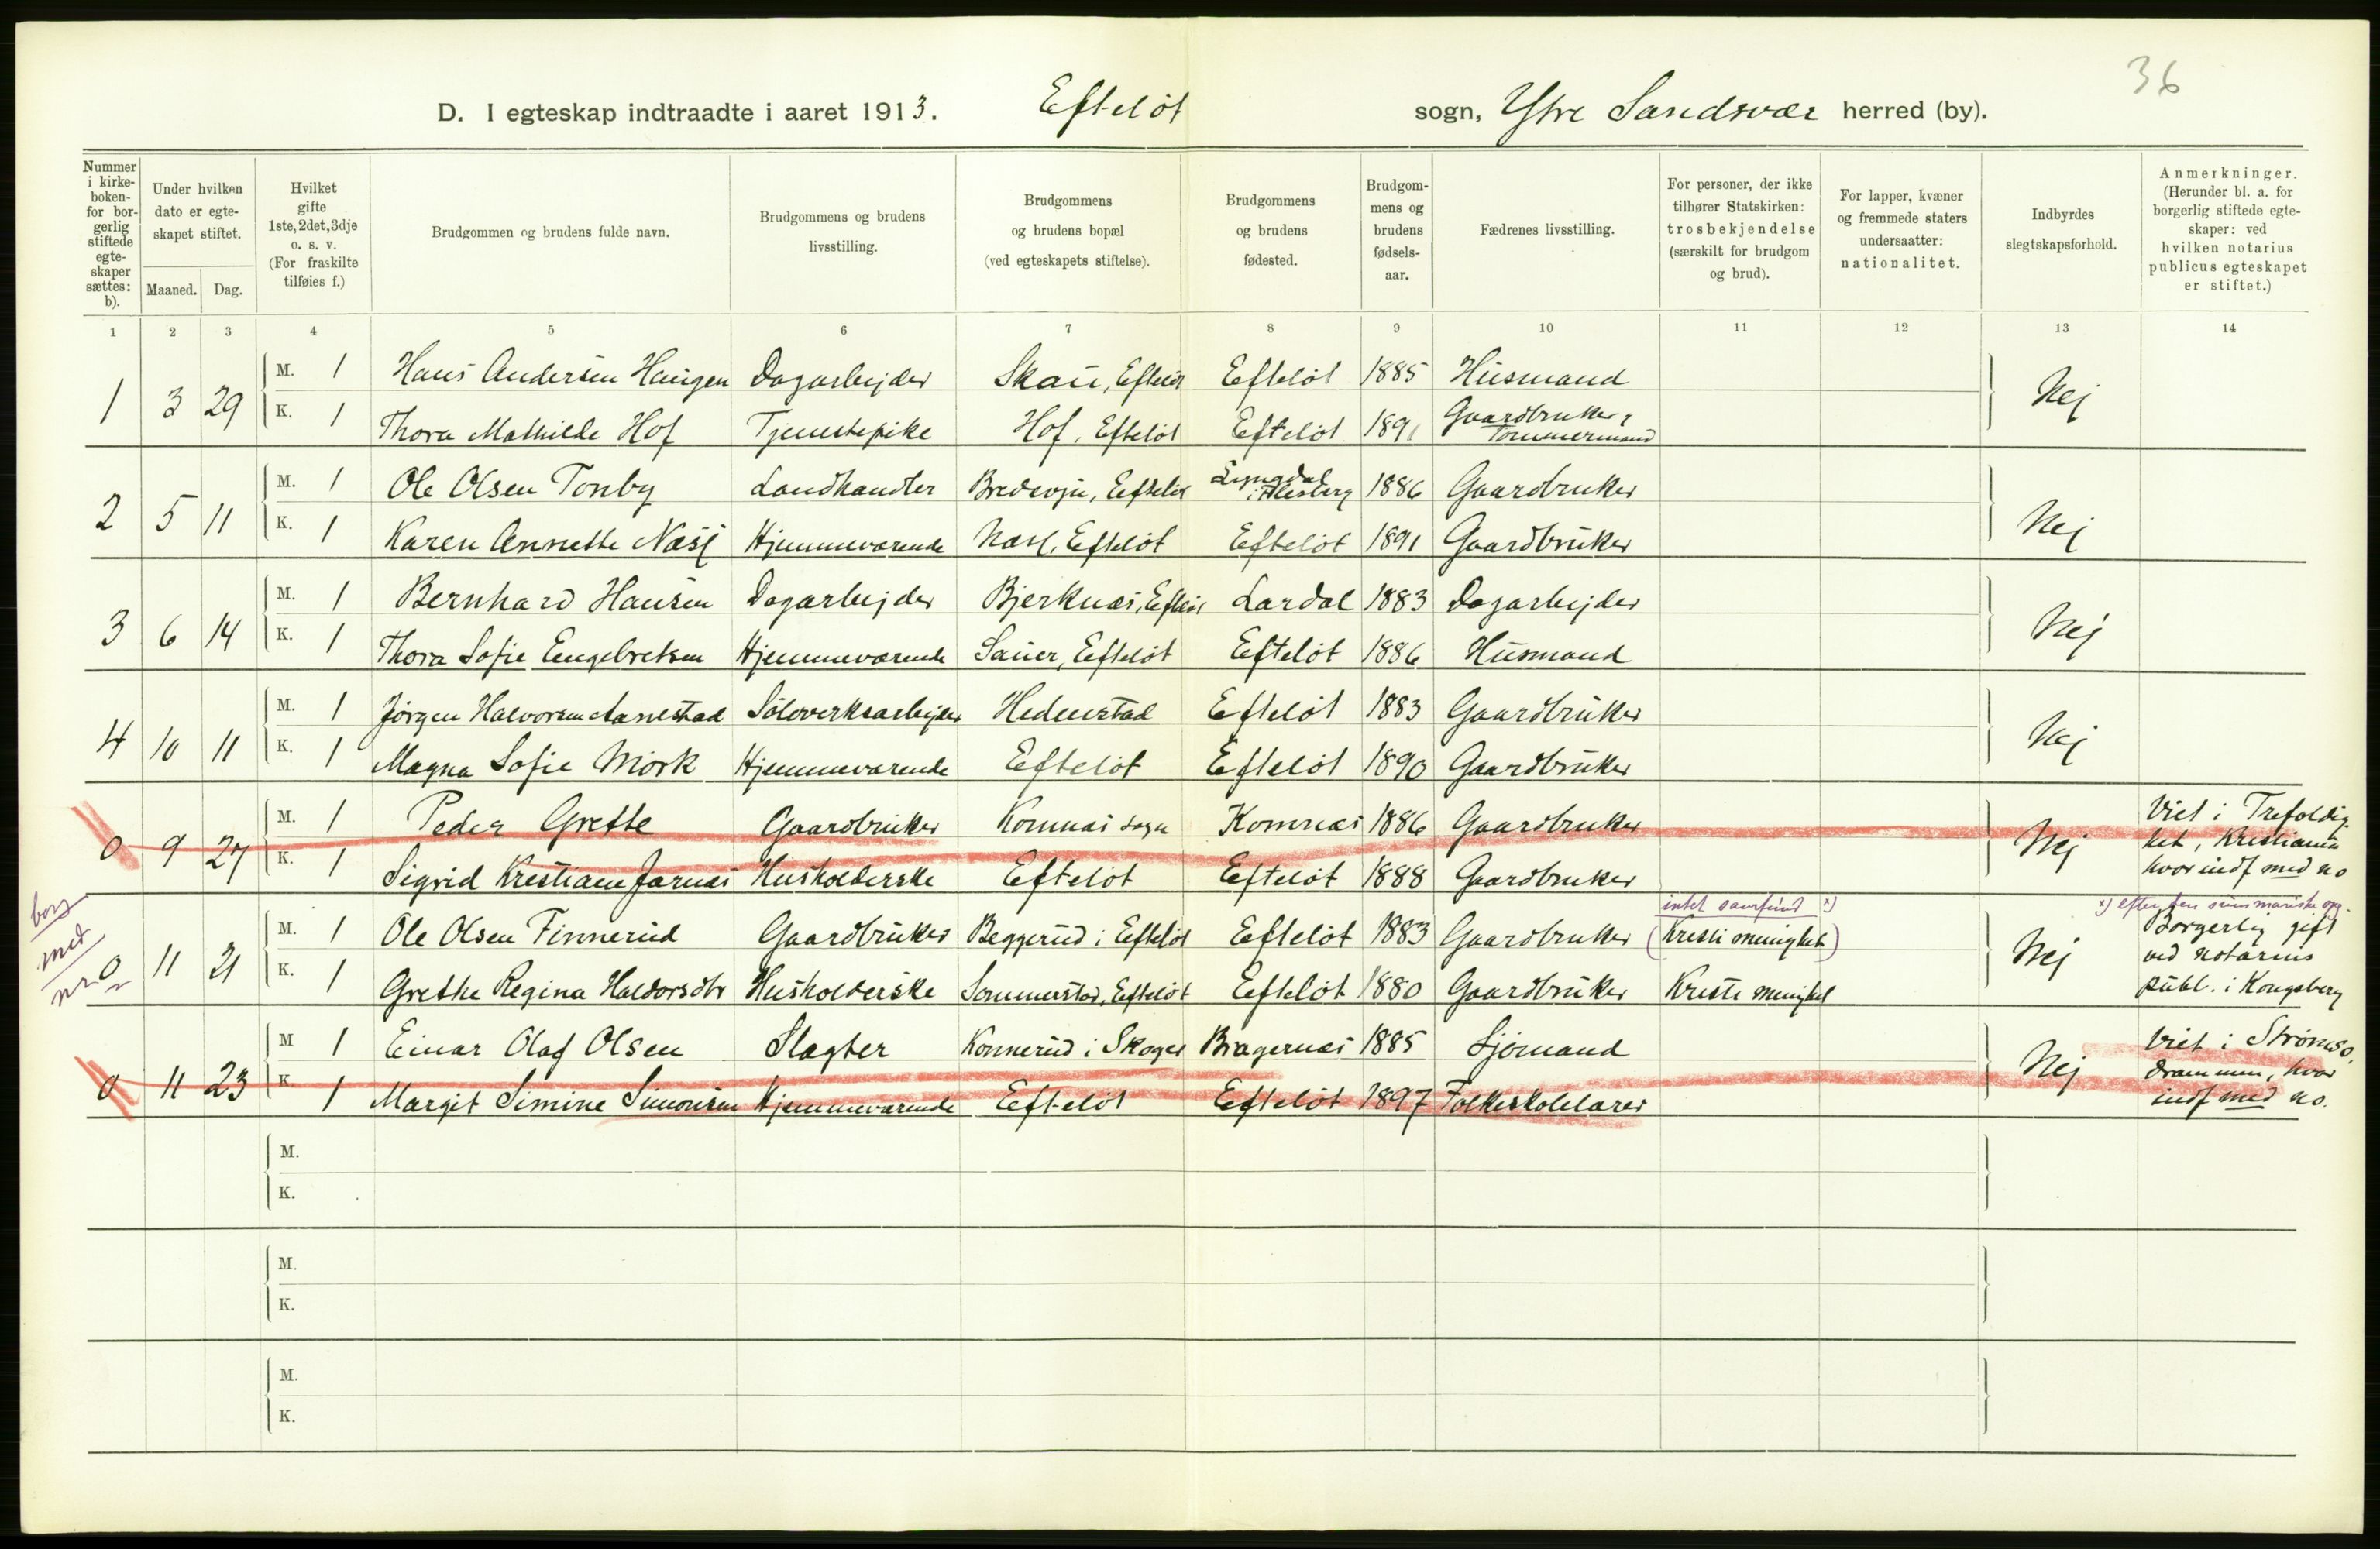 36
D. I egteskap indtraadte i aaret 1913. Efteløt sogn, Ytre Sandsvær herred (by).
Nummer i kirke-boken- for bor-gerlig stiftede egte-skaper sættes: b).
Under hvilken dato er egte-skapet stiftet.
Maaned. Dag.
Hvilket gifte 1ste, 2det, 3dje o. s. v. (For fraskilte tilføies f.)
Brudgommen og brudens fulde navn.
Brudgommens og brudens livsstilling.
Brudgommens og brudens bopæl (ved egteskapets stiftelse).
Brudgommens og brudens fødested.
Brudgom-mens og brudens fødsels-aar.
Fædrenes livsstilling.
For personer, der ikke tilhører Statskirken: trosbekjendelse (særskilt for brudgom og brud).
For lapper, kvæner og fremmede staters undersaatter: nationalitet.
Indbyrdes slegtskapsforhold.
Anmerkninger. (Herunder bl. a. for borgerlig stiftede egte-skaper: ved hvilken notarius publicus egteskapet er stiftet.)
1 2 3 4 5 6 7 8 9 10 11 12 13 14
1 3 29 M. 1 Hans Andersen Haugen Dagarbejder Skau, Efteløt Efteløt 1885 Husmand Nej
K. 1 Thora Mathilde Hof Tjenestepike Hof, Efteløt Efteløt 1891 Gaardbruker, Tømmermand
2 5 11 M. 1 Ole Olsen Tonby Landhandler Bredevju, Efteløt Lyngdal i Flesberg 1886 Gaardbruker Nej
K. 1 Karen Annette Næss Hjemmeværende Næss, Efteløt Efteløt 1891 Gaardbruker
3 6 14 M. 1 Bernhard Hansen Dagarbejder Bjerknæs, Efteløt Lardal 1883 Dagarbejder Nej
K. 1 Thora Sofie Engebretsen Hjemmeværende Sauer, Efteløt Efteløt 1886 Husmand
4 10 11 M. 1 Jørgen Halvorsen Aanestad Sølvverksarbejder Hedenstad Efteløt 1883 Gaardbruker Nej
K. 1 Magna Sofie Mørk Hjemmeværende Efteløt Efteløt 1890 Gaardbruker
0 9 27 M. 1 Peder Grette Gaardbruker Komnæs sogn Komnæs 1886 Gaardbruker Nej Viet i Trefoldig-
K. 1 Sigrid Kristiane Jarnæs Husholderske Efteløt Efteløt 1888 Gaardbruker
het, Kristiania
hvor indf med no
borg
med
nr.
intet samfund x)
x) efter den summariske opg.
0 11 21 M. 1 Ole Olsen Finnerud Gaardbruker Beggerud i Efteløt Efteløt 1883 Gaardbruker (Kristi menighet) Nej Borgerlig gift
K. 1 Grethe Regina Haldorsdtr Husholderske Sommerstad, Efteløt Efteløt 1880 Gaardbruker Kristi menighet
ved notarius
publ. i Kongsberg
0 11 23 M 1 Einar Olaf Olsen Slagter Konnerud i Skoger Bragernæs 1885 Sjømand Nej Viet i Strømsø,
K. 1 Margit Simine Simonsen Hjemmeværende Efteløt Efteløt 1897 Folkeskolelærer
Drammen, hvor
indf med no.
M.
K.
M.
K.
M.
K.